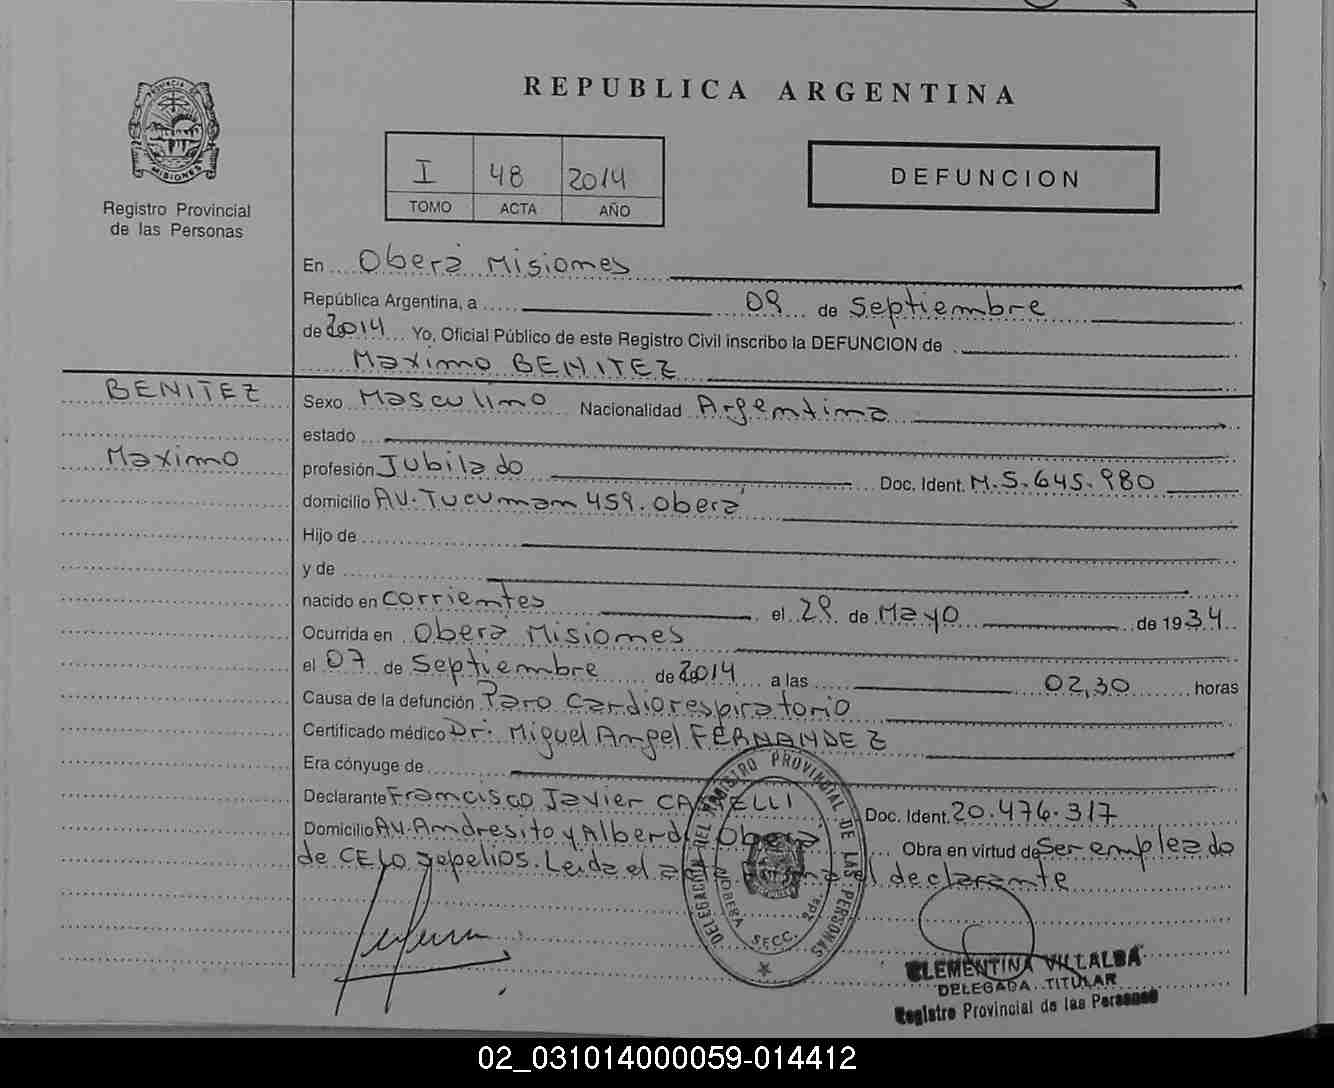 REPUBLICA ARGENTINA
PROVINCIA DE MISIONES
Registro Provincial
de las Personas
I 48 2014
TOMO ACTA AÑO
DEFUNCION
En Oberá Misiones
República Argentina, a 09 de Septiembre
de 2014 Yo, Oficial Público de este Registro Civil inscribo la DEFUNCION de
Maximo BENITEZ
BENITEZ
Maximo
Sexo Masculino Nacionalidad Argentina
estado
profesión Jubilado Doc. Ident. M.5.645.980
domicilio AV. Tucuman 459. Oberá
Hijo de
y de
nacido en Corrientes el 29 de Mayo de 1934
Ocurrida en Oberá Misiones
el 07 de Septiembre de 2014 a las 02,30 horas
Causa de la defunción Paro Cardiorespiratorio
Certificado médico Dr. Miguel Angel FERNANDEZ
Era cónyuge de
Declarante Francisco Javier Doc. Ident. 20.476.317
Domicilio AV. Andresito y Alberdi Oberá Obra en virtud de Ser empleado
de CELO sepelios. Leida el acta firma el declarante
DELEGACION DEL REGISTRO PROVINCIAL DE LAS PERSONAS
OBERA SECC. 2da.
CLEMENTINA VILLALBA
DELEGADA TITULAR
Registro Provincial de las Personas
02_031014000059-014412